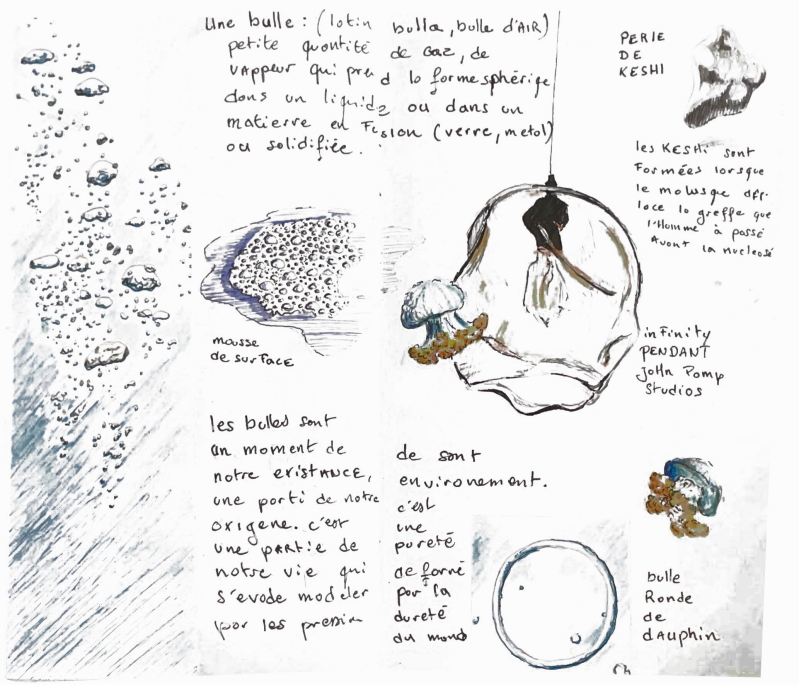 une bulle : (latin bulla, bulle d'AIR)
petite quantité de GaZ, de
vappeur qui prend la forme sphérique
dans un liquide ou dans un
matierre en Fusion (verre, metal)
ou solidifiée.
PERlE
DE
KESHI
les KESHi sont
Formées lorsque
le molusque dép-
lace la greffe que
l'Homme à passé
Avant la nucleosé
mousse
de surface
inFinity
PENDANT
John Pomp
Studios
les bulles sont
un moment de
notre existance,
une parti de notre
oxigene. c'est
une partie de
notre vie qui
s'evade modeler
par les pression
de sont
environement.
c'est
une
pureté
deformé
par la
dureté
du monde
bulle
Ronde
de
dAuphin